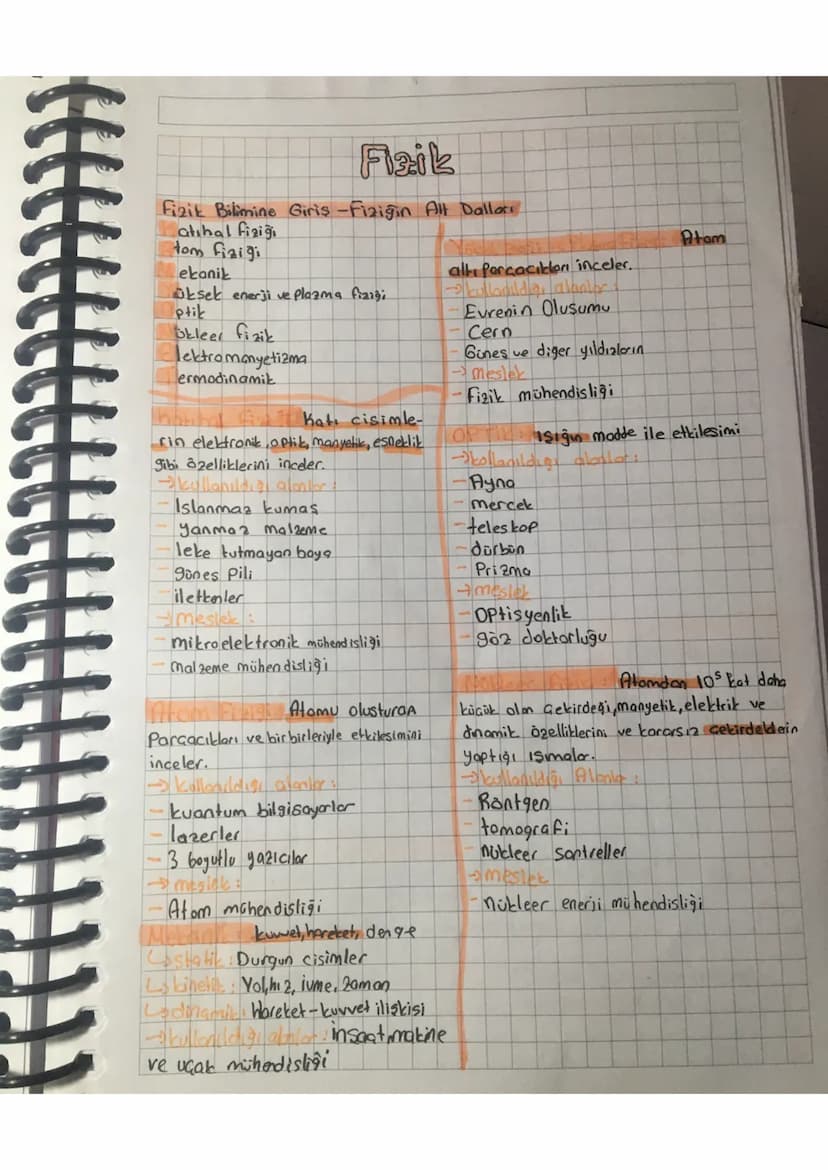 Fizik
Fizik Bilimine Giriş - Fiziğin Alt Dalları
Katıhal fiziği
Atom fiziği
Mekanik
Yüksek enerji ve Plazma fiziği
Optik
Nükleer fizik
Elektromanyetizma
Termodinamik
Katıhal Fiziği: Katı cisimle-
rin elektronik, optik, manyetik, esneklik
gibi özelliklerini inceler.
→kullanıldığı alanlar:
- Islanmaz kumaş
- yanmaz malzeme
- leke tutmayan boya
- güneş pili
- iletkenler
→meslek:
- mikroelektronik mühendisliği
- malzeme mühendisliği
Atom Fiziği: Atomu oluşturan
Parçacıkları ve birbirleriyle etkileşimini
inceler.
→ kullanıldığı alanlar:
- kuantum bilgisayarlar
- lazerler
- 3 boyutlu yazıcılar
→ meslek:
- Atom mühendisliği
Mekanik: kuvvet, hareket, denge
↳statik: Durgun cisimler
↳kinetik: Yol, hız, ivme, zaman
↳dinamik: Hareket-kuvvet ilişkisi
→kullanıldığı alanlar: inşaat, makine
ve uçak mühendisliği
Atom
altı parçacıkları inceler.
→kullanıldığı alanlar:
- Evrenin Oluşumu
- Cern
- Güneş ve diğer yıldızların
→meslek
- fizik mühendisliği
OPTİK: ışığın madde ile etkileşimi
→kullanıldığı alanlar:
- Ayna
- mercek
- teleskop
- dürbün
- Prizma
→meslek
- OPtisyenlik
- göz doktorluğu
Nükleer Fizik: Atomdan 10⁵ kat daha
küçük olan çekirdeği, manyetik, elektrik ve
dinamik özelliklerini ve kararsız çekirdeklerin
yaptığı ışımalar.
→kullanıldığı Alanlar:
- Röntgen
- tomografi
- nükleer santreller
→meslek
- nükleer enerji mühendisliği